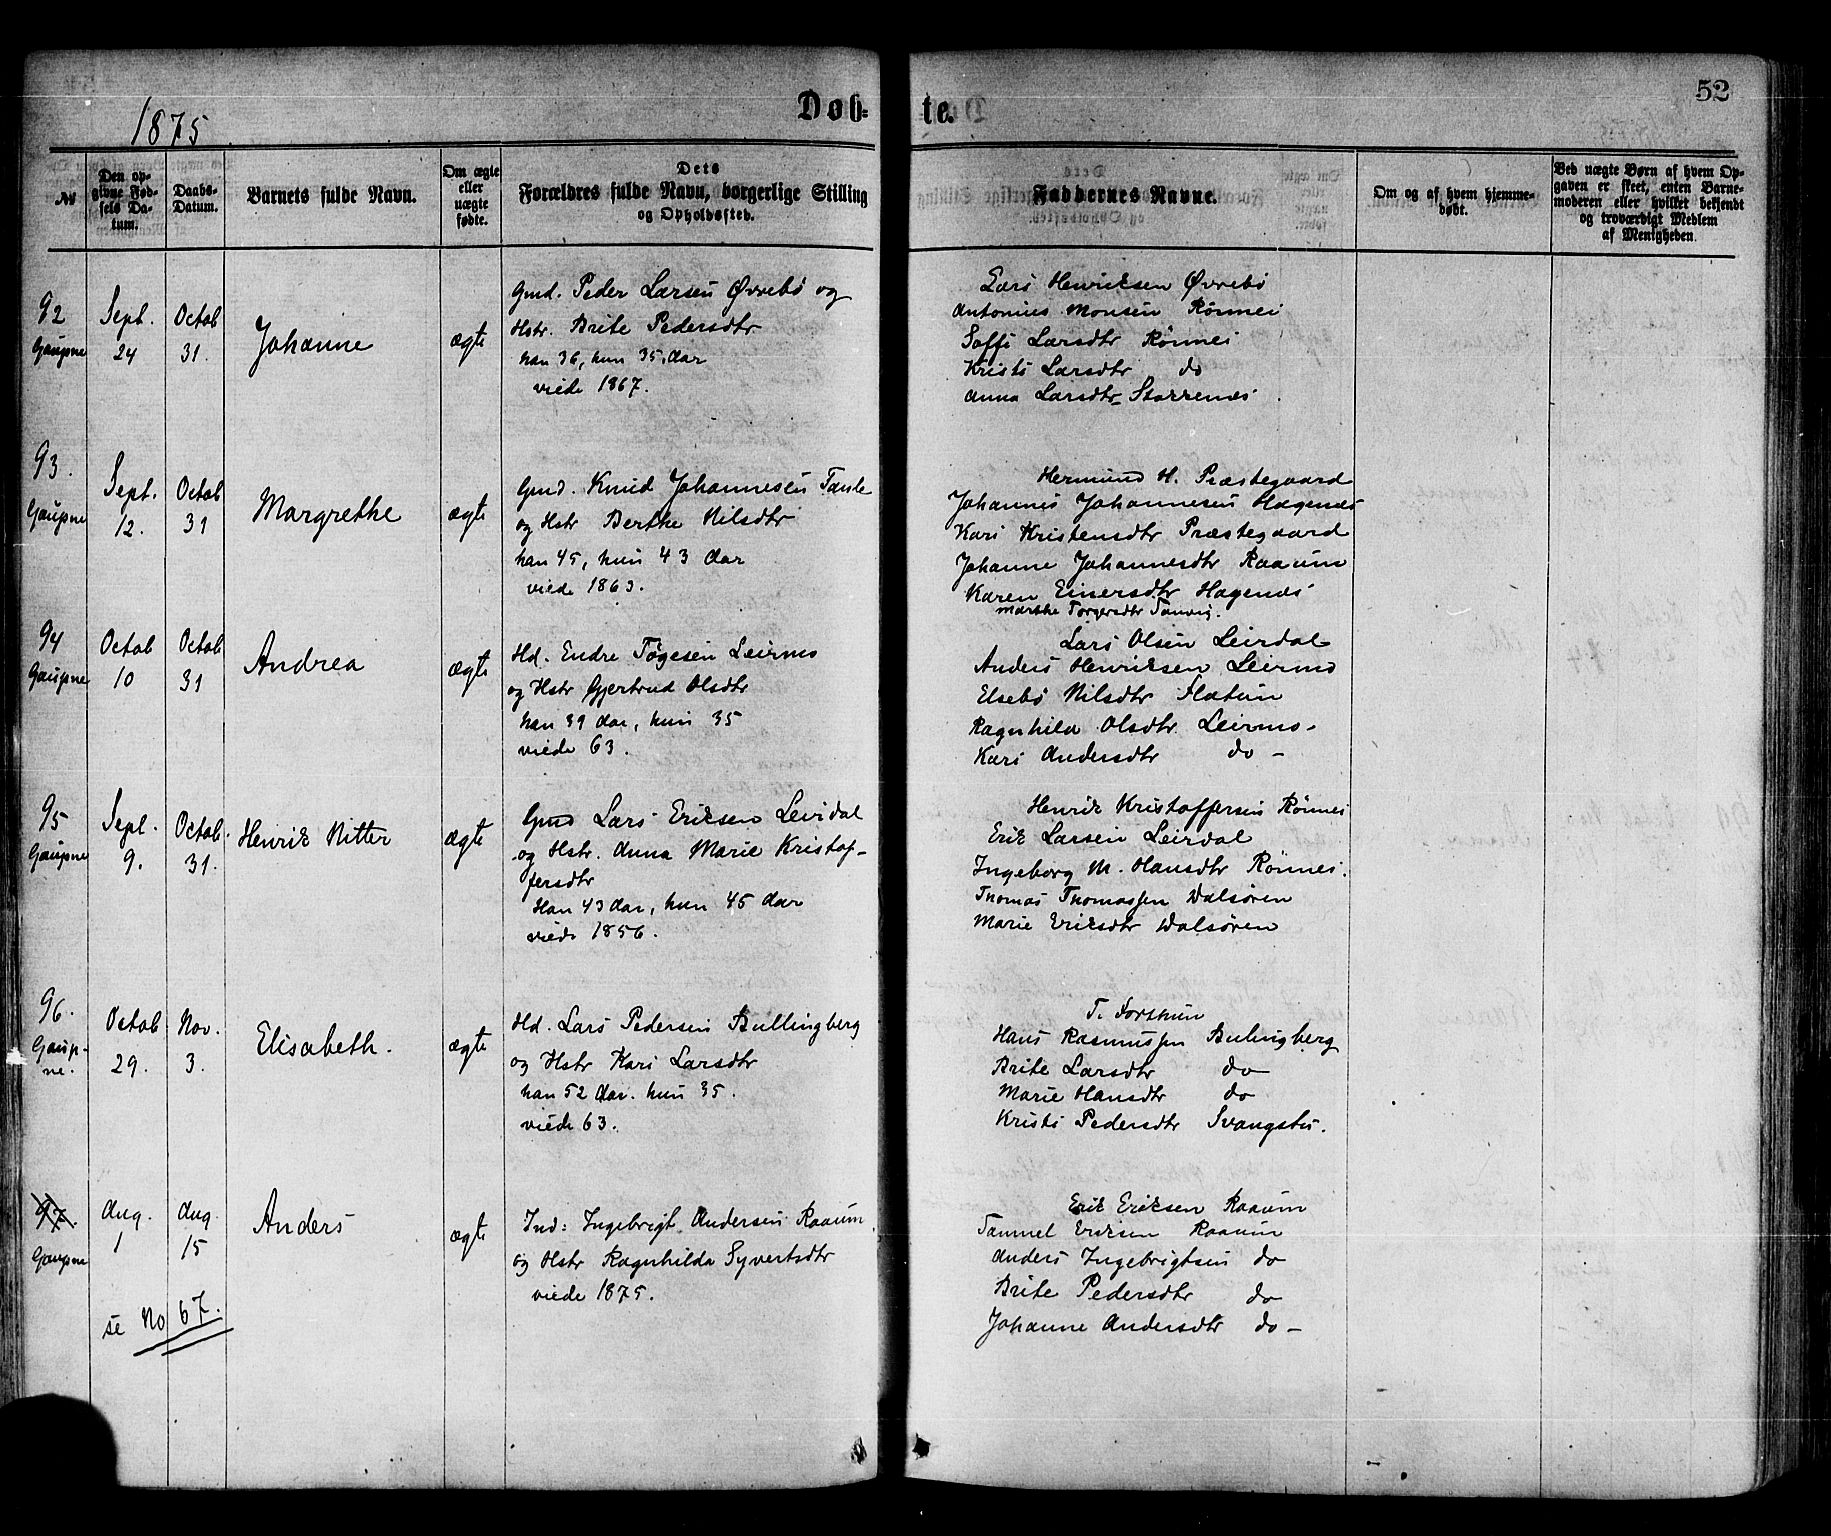 1875
Døb-
te.
52
No
Den op-
givne Fød-
sels Da-
tum.
Daabs-
Datum.
Barnets fulde Navn.
Om ægte
eller
uægte
fødte.
Dets
Forældres fulde Navn, borgerlige Stilling
og Opholdssted.
Faddernes Navne.
Om og af hvem hjemme-
døbt.
Ved uægte Børn af hvem Op-
gaven er skeet, enten Barne-
moderen eller hvilket bekjendt
og troværdigt Medlem
af Menigheden.
92
Gaupne
Sept.
24
Octob
31.
Johanne
ægte
Gmd. Peder Larsen Øvrebø og
Hstr. Brite Pedersdtr
han 36, hun 35, Aar
viede 1867.
Lars Henriksen Øvrebø
Antonius Monsen Rønnei
Søffi Larsdtr Rønnei
Kristi Larsdtr do
Anna Larsdtr Storrenes
93.
Gaupne
Sept.
12.
Octob
31
Margrethe
ægte
Gmd. Knud Johannesen
og Hstr Berthe Nilsdtr
han 45, hun 43 Aar
viede 1863.
Hermund H. Præstegaard
Johannes Johannesen Hagenæs
Kari Kristensdtr Præstegaard
Johanne Johannesdtr Raaum
Karen Einersdtr Hagenæs
Marthe Torgersdtr
94
Gaupne
Octob
10
Octob
31
Andrea
ægte
Hd. Endre Tøgesen Leirmo
og Hstr Gjertrud Olsdtr
han 39 Aar, hun 35
viede 63.
Lars Olsen Leirdal
Anders Henriksen Leirmo
Elsebø Nilsdtr Flatun
Ragnhild Olsdtr. Leirmo
Kari Andersdtr do -
95
Gaupne
Sept.
9.
Octob.
31.
Henrik Nitter
ægte
Gmd Lars Eriksen Leirdal
og Hstr. Anna Marie Kristof-
fersdtr
Han 43 Aar, hun 45 Aar
viede 1856.
Henrik Kristoffersen Rønnei
Erik Larsen Leirdal
Ingeborg M. Hansdtr Rønnei.
Thomas Thomassen Dalsøren
Marie Eriksdtr Dalsøren
96.
Gaup-
ne.
Octob
29.
Nov.
3.
Elisabeth.
ægte
Hd. Lars Pedersen Bullingberg
og Hstr Kari Larsdtr
han 52 Aar. hun 35.
viede 63.
T. Forthun
Hans Rasmussen Bulingberg
Brite Larsdtr do
Marie Hansdtr do
Kristi Pedersdtr
97.
Gaupne
Aug.
1
Aug.
15
Anders
ægte
Ind: Ingebrigt Andersen Raaum
og Hstr Ragnhilda Syvertsdtr
viede 1875.
Erik Eriksen Raaum
Samuel Eriksen Raaum
Anders Ingebrigtsen do
Brite Pedersdtr do
Johanne Andersdtr do -
se No 67.